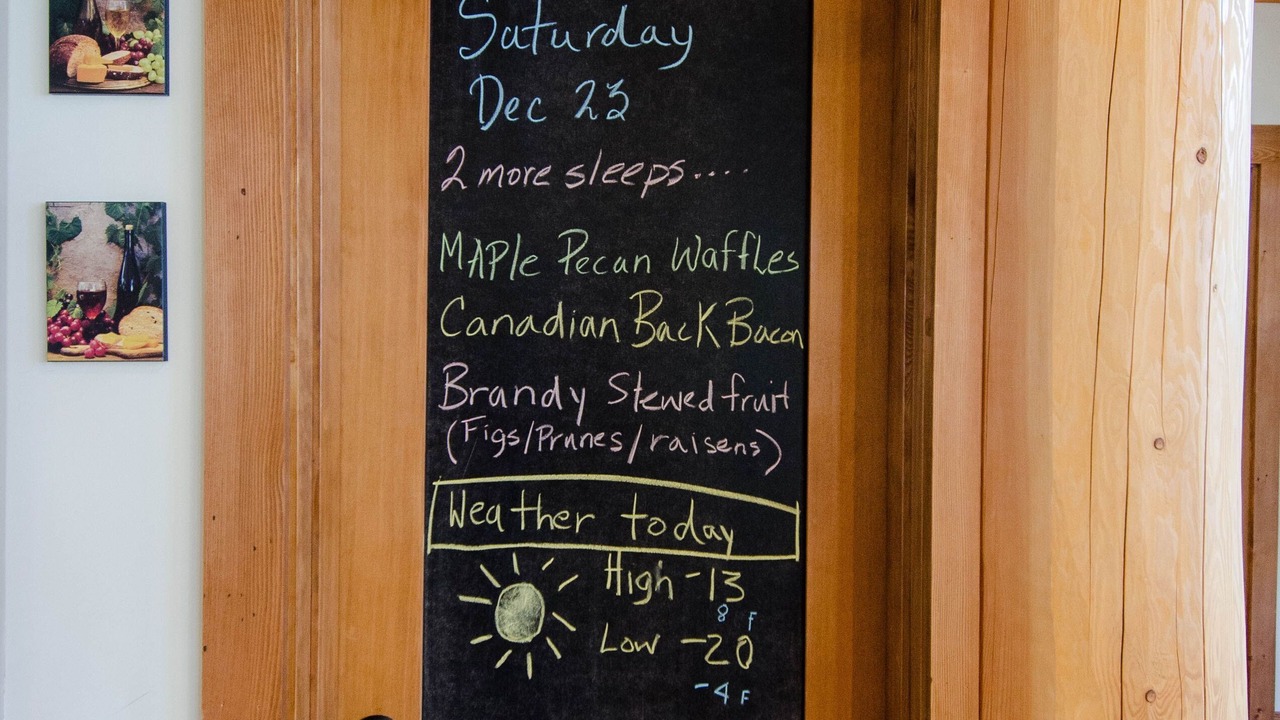 Saturday
Dec 23
2 more sleeps....
MAPle Pecan Waffles
Canadian Back Bacon
Brandy Stewed fruit
(Figs/Prunes/raisens)
Weather today
High -13
8 F
Low -20
-4 F